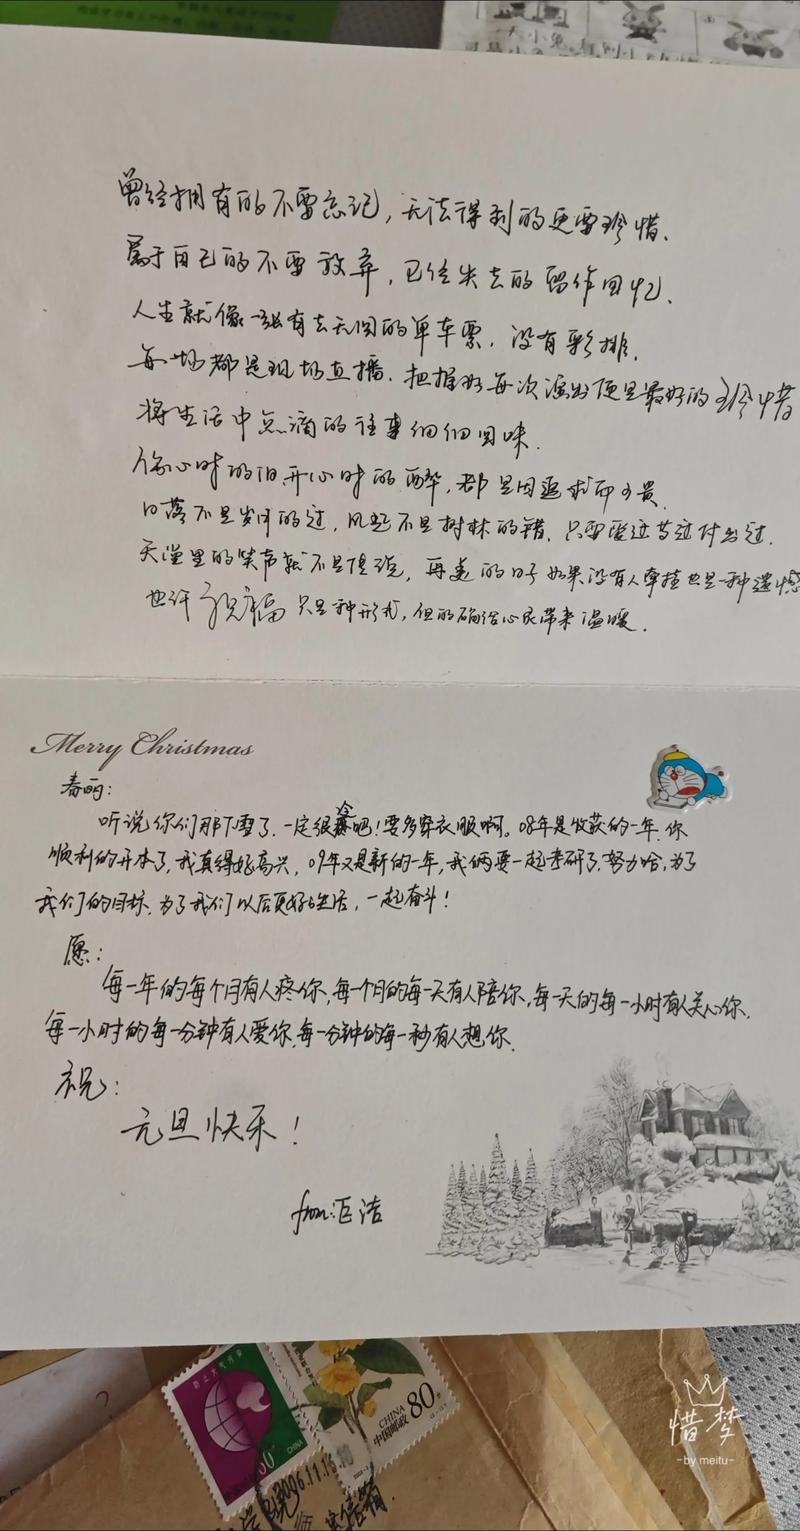 曾经拥有的不要忘记，无法得到的更要珍惜、
属于自己的不要放弃，已经失去的留作回忆、
人生就像一张有去无回的单车票，没有彩排、
每一场都是现场直播、把握好每次演出便是最好的珍惜
将生活中点滴的往事细细回味、
伤心时的泪、开心时的醉，都是因追求而可贵、
日落不是岁月的过，风起不是树林的错、只要爱过等过付出过、
天堂里的笑声就不是传说，再美的日子如果没有人牵挂也是一种遗憾
也许祝福只是种形式，但的确给心灵带来温暖、
Merry Christmas
春丽：
听说你们那下雪了、一定很冷吧！要多穿衣服啊。08年是收获的一年、你
顺利的开本了，我真得好高兴，09年又是新的一年，我俩要一起考研了、努力哈，为了
我们的目标、为了我们以后更好的生活，一起奋斗！
愿：
每一年的每个月有人疼你，每一个月的每一天有人陪你，每一天的每一小时有人关心你、
每一小时的每一分钟有人爱你、每一分钟的每一秒有人想你、
祝：
元旦快乐！
from：洁
CHINA
CHINA
中国邮政
80
惜梦
-by meitu-